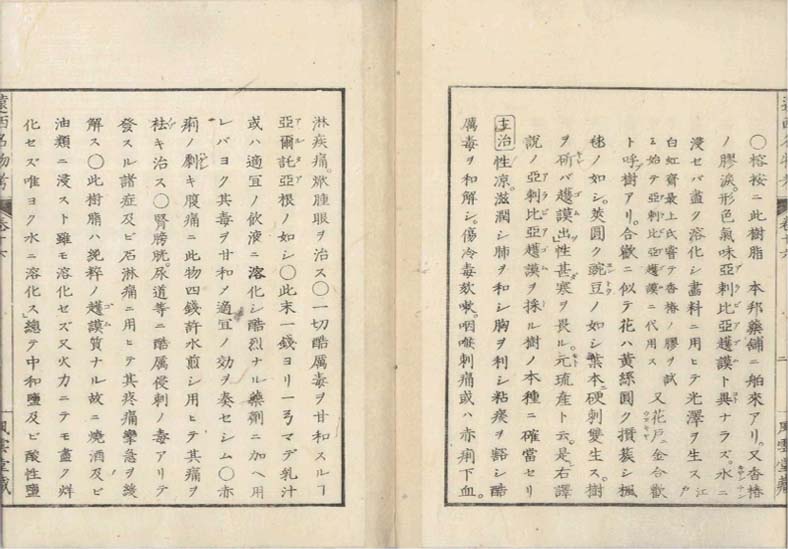 遠西名物考
卷十六
二
風雲堂藏
○榕按ニ此樹脂 本邦藥鋪ニ舶來アリ。又香椿
ノ膠淚。形色氣味亞剌比亞護謨ト異ナラズ。水ニ
浸セバ盡ク溶化シ畫料ニ用ヒテ光澤ヲ生ス 江戶
白虹齋最上氏嘗テ香椿ノ膠ヲ試
ミ始テ亞剌比亞護謨ニ代用ス 又花戶ニ金合歡
ト呼樹アリ。合歡ニ似テ花ハ黃綠圓ク攢簇シ楓
毬ノ如シ。莢圓ク豌豆ノ如シ葉本ニ硬刺雙生ス。樹
ヲ斫バ護謨出。性甚寒ヲ畏ル。元琉產ト云。是右譯
說ノ亞剌比亞護謨ヲ採ル樹ノ本種ニ確當セリ
主治 性凉。滋潤シ肺ヲ和シ胸ヲ利シ粘痰ヲ豁シ酷
厲毒ヲ和解シ。傷冷毒欬嗽。咽喉刺痛或ハ赤痢下血。
淋疾痛。焮腫眼ヲ治ス○一切酷厲毒ヲ甘和スルヿ
亞爾託亞根ノ如シ○此末一錢ヨリ一弓マデ乳汁
或ハ適宜ノ飲液ニ溶化シ酷烈ナル藥劑ニ加ヘ用
レバヨク其毒ヲ甘和ノ適宜ノ効ヲ奏セシム○赤
痢ノ刺キ腹痛ニ此物四錢許水煎シ用ヒテ其痛ヲ
袪キ治ス○腎膀胱。尿道等ニ酷厲侵刺ノ毒アリテ
發スル諸症及ビ石淋痛ニ用ヒテ其疼痛攣急ヲ緩
解ス○此樹脂ハ純粹ノ護謨質ナル故ニ燒酒及ビ
油類ニ浸スト雖モ溶化セズ又火力ニテモ盡ク烊
化セズ唯ヨク水ニ溶化ス」總テ中和鹽及ビ酸性鹽
遠西名物考
卷十六
風雲堂藏